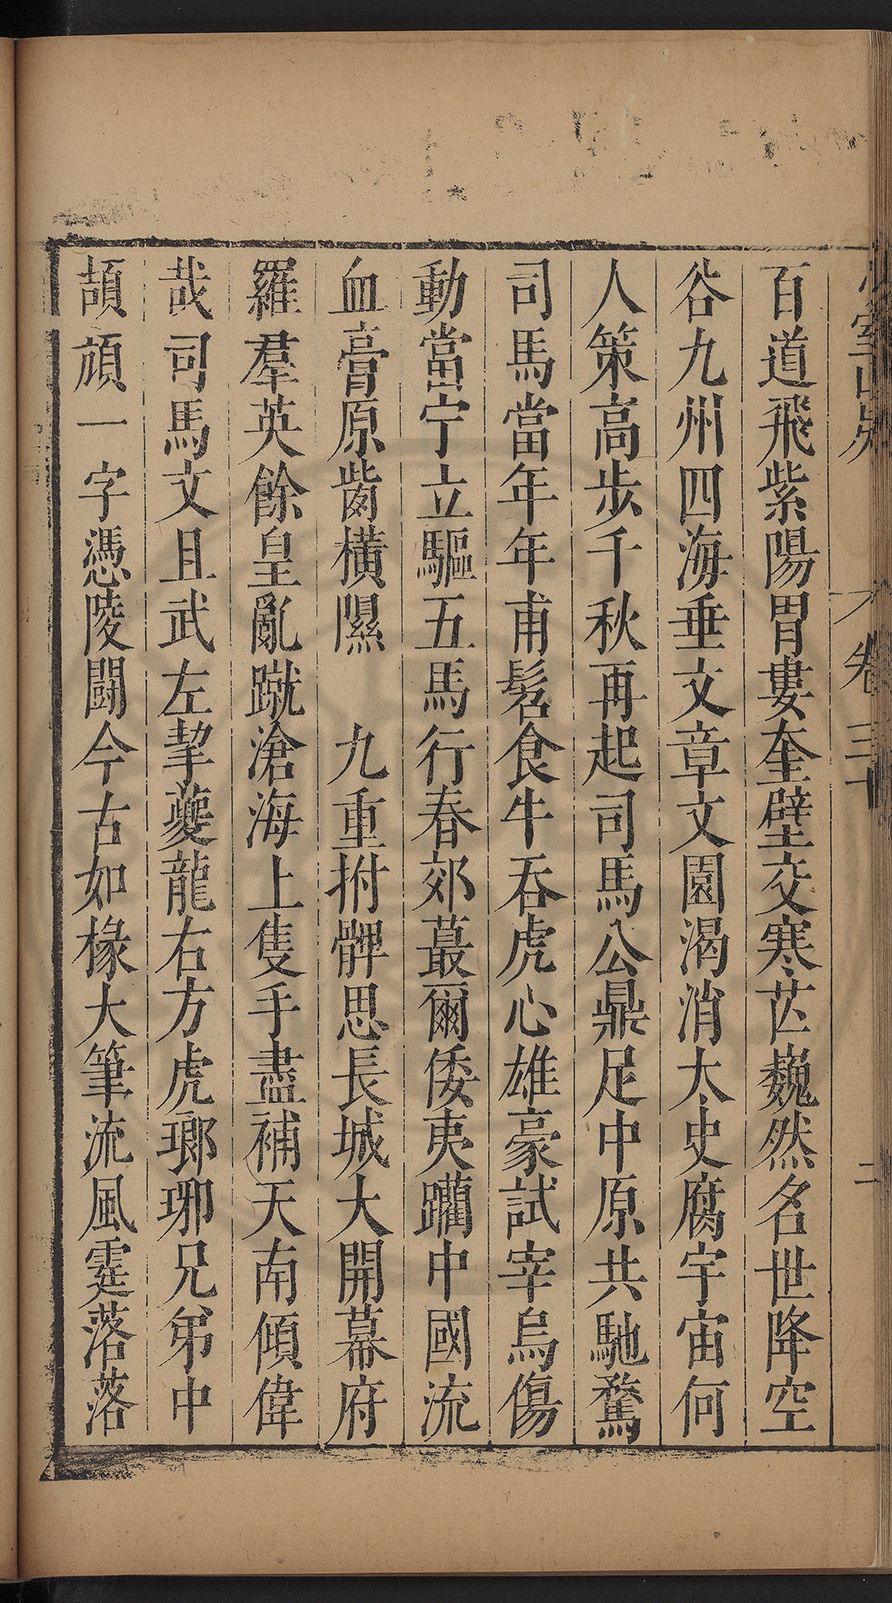 室山房　卷三十　二
百道飛紫陽胃婁奎壁交寒芒巍然名世降空
谷九州四海垂文章文園渴消太史腐宇宙何
人策高步千秋再起司馬公鼎足中原共馳騖
司馬當年年甫髫食牛吞虎心雄豪試宰烏傷
動當宁立驅五馬行春郊蕞爾倭夷躪中國流
血膏原胔橫隰　九重拊髀思長城大開幕府
羅羣英餘皇亂蹴滄海上隻手盡補天南傾偉
哉司馬文且武左挈夔龍右方虎瑯琊兄弟中
頡頏一字憑陵闘今古如椽大筆流風霆落落